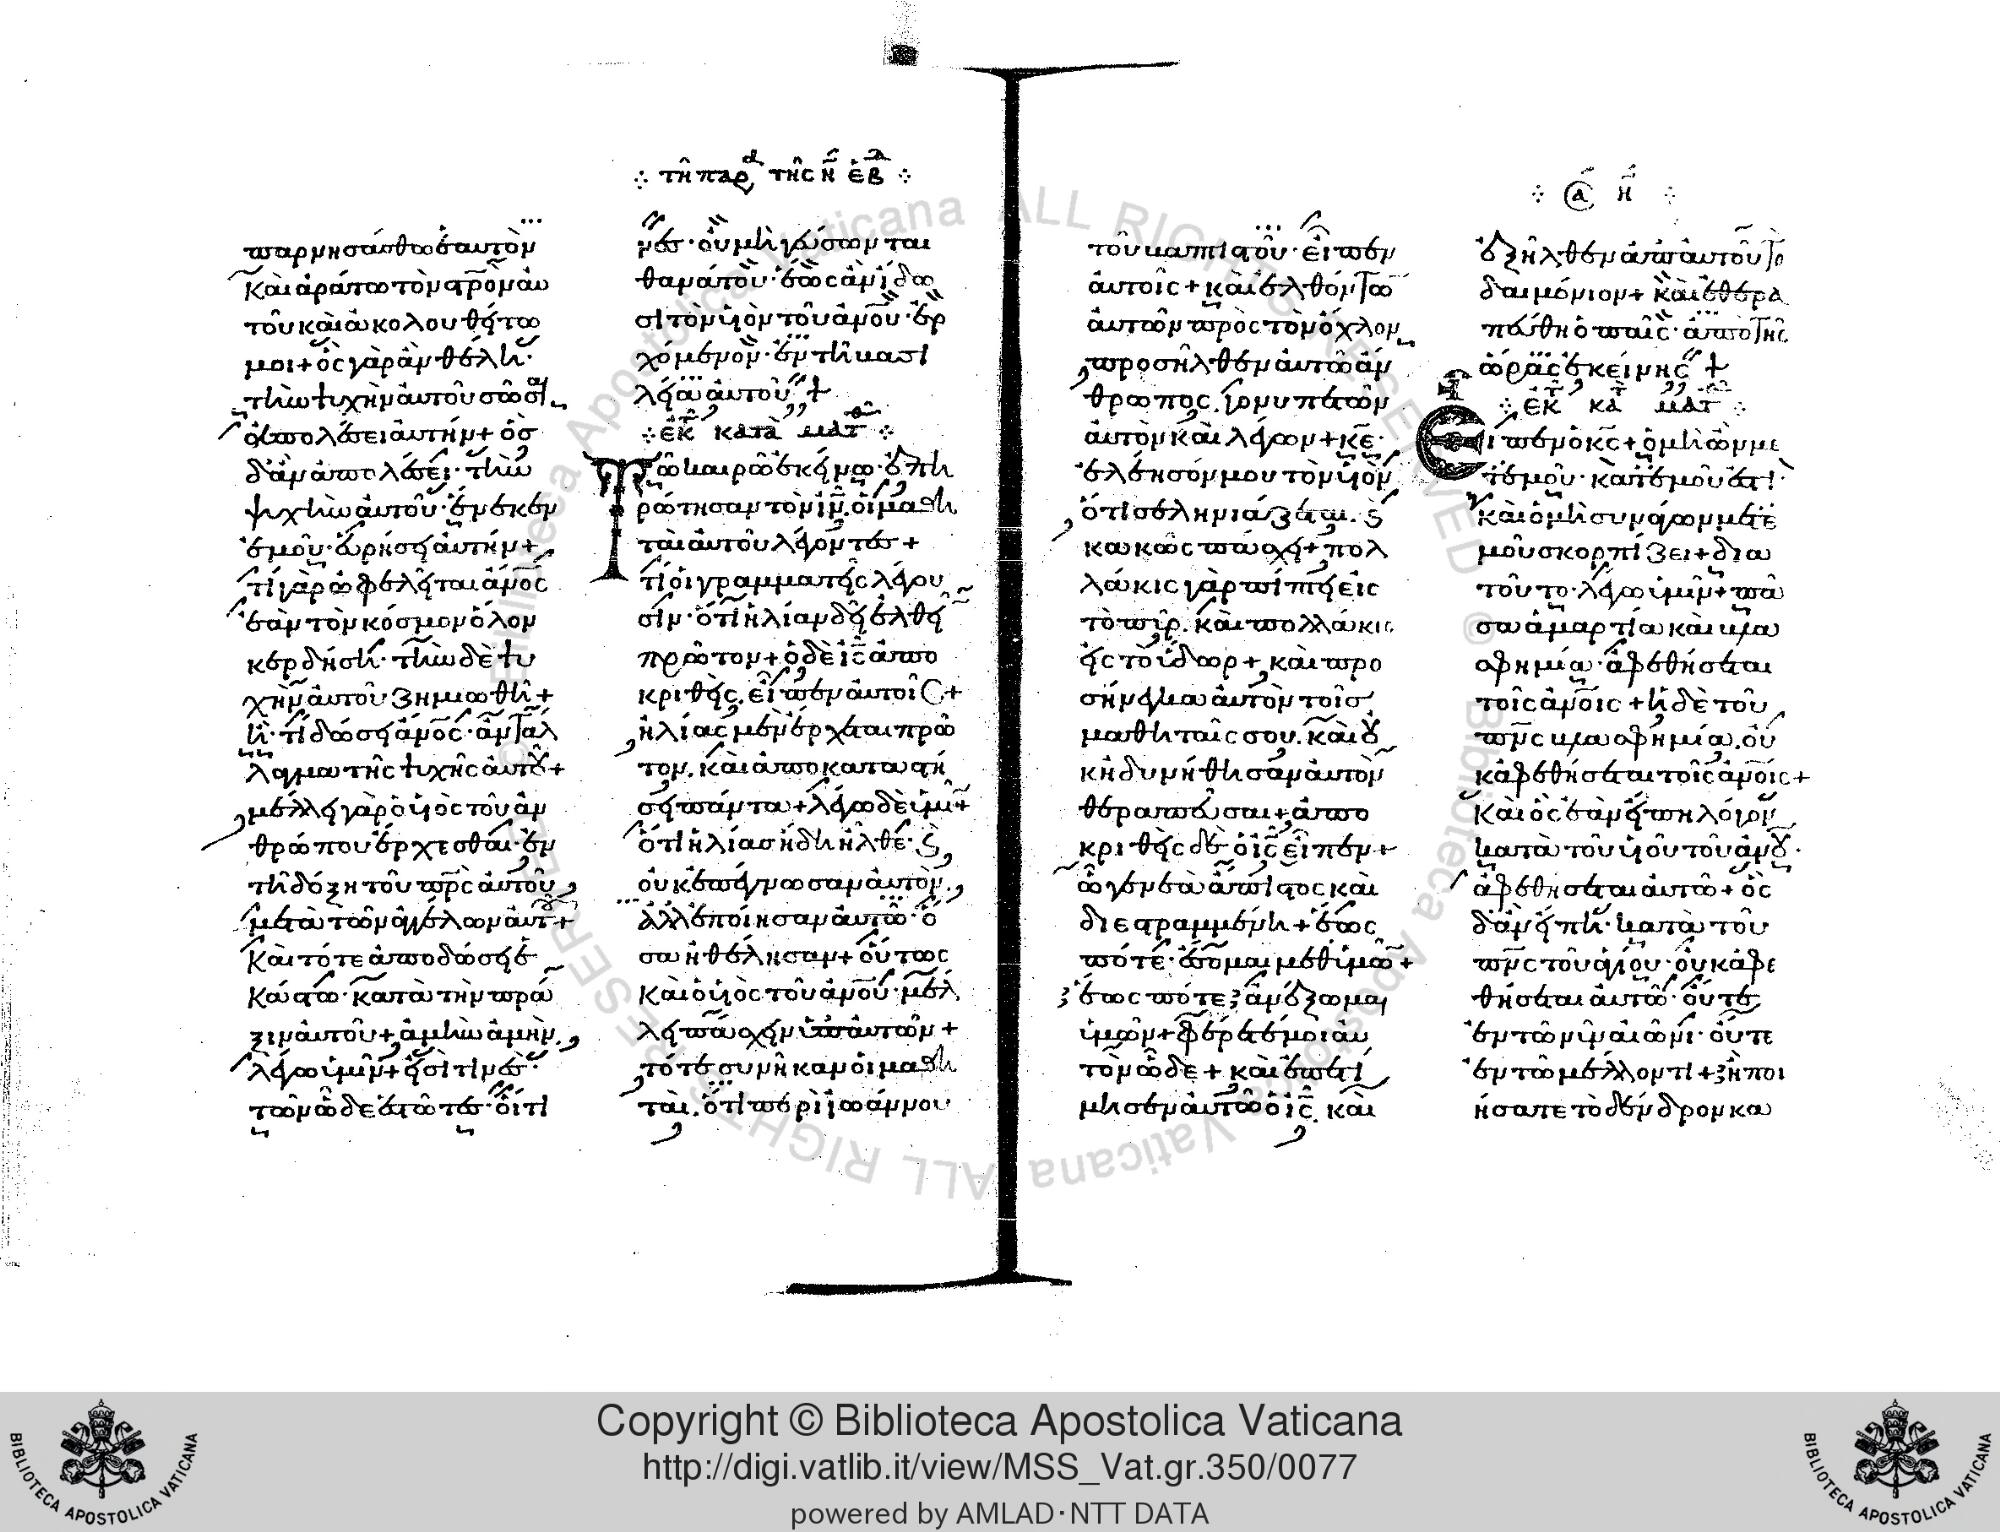 παρνησάσθω ἑαυτὸν
Καὶ ἀράτω τὸν σρον αυ
τοῦ καὶ ἀκολουθείτω
μοι + ὃς γὰρ ἂν θέλη·
τὴν ψυχὴν αὐτοῦ σῶσαι,
ἀπολέσει αὐτήν + ὃσ
δ' ἂν ἀπολέσει· τὴν
ψυχὴν αὐτοῦ· ἕνεκεν
ἐμοῦ· εὑρήσει αὐτήν +
τί γὰρ ὠφελεῖται ἄνος
ἐὰν τὸν κόσμον ὅλον
κερδήση· τὴν δὲ ψυ
χὴν αὐτοῦ ζημιωθῆ +
ἢ· τί δώσει ἄνος· ἀντάλ
λαγμα τῆς ψυχῆς αὐτοῦ +
μέλλει γὰρ ὁ υἱὸς τοῦ ἀν
θρώπου ἔρχεσθαι· ἐν
τῆ δόξη τοῦ πρς αὐτοῦ,
μετὰ τῶν ἀγγέλων αὐτοῦ +
Καὶ τότε ἀποδώσει ἑ
κάστω· κατὰ τὴν πρᾶ
ξιν αὐτοῦ + ἀμὴν ἀμὴν,
λέγω ὑμῖν + εἰσί τινες·
τῶν ὧδε ἑστῶτες· οἵτι
∴ τῆ παρ τῆς η ἑβδ ∴
νες· οὐ μὴ γεύσωνται
θανάτου· ἕως ἂν ἴδω
σι τὸν υἱὸν τοῦ ἀνου· ἐρ
χόμενον· ἐν τῆ βασι
λεία αὐτοῦ +
∴ ἐκ κατὰ ματθ ∴
Τῶ καιρῶ ἐκείνω· ἐπη
ρώτησαν τὸν ιν, οἱ μαθη
ταὶ αὐτοῦ λέγοντες +
τί οἱ γραμματεῖς λέγου
σίν· ὅτι ἠλίαν δεῖ ἐλθεῖ
πρῶτον + ὁ δὲ ις ἀπο
κριθεὶς, εἶπεν αὐτοῖς +
ἠλίας μὲν ἔρχεται πρῶ
τον, καὶ ἀποκαταστή
σει πάντα + λέγω δὲ ὑμῖν +
ὅτι ἠλίας ἤδη ἦλθε· κ
οὐκ ἐπέγνωσαν αὐτὸν,
ἀλλ' ἐποίησαν αὐτῶ· ὅ
σα ἠθέλησαν + οὕτως
Καὶ ὁ υἱὸς τοῦ ἀνου· μέλ
λει πάσχειν ὑπ' αὐτῶν +
τότε συνῆκαν οἱ μαθη
ταὶ, ὅτι περὶ ἰωάννου
τοῦ βαπτιστοῦ· εἶπεν
αὐτοῖς + καὶ ἐλθόντω
αὐτῶν πρὸς τὸν ὄχλον,
προσῆλθεν αὐτῶ ἄν
θρωπος, γονυπετῶν
αὐτὸν καὶ λέγων + κε·
ἐλέησόν μου τὸν υἱὸν,
ὅτι σεληνιάζεται, κ
κακῶς πάσχει + πολ
λάκις γὰρ πίπτει εἰς
τὸ πῦρ, καὶ πολλάκις
εἰς τὸ ὕδωρ + καὶ προ
σήνεγκα αὐτὸν τοῖσ
μαθηταῖς σου, καὶ οὐ
κ ἠδυνήθησαν αὐτὸν
θεραπεῦσαι + ἀπο
κριθεὶς δὲ ὁ ις εἶπεν +
ὦ γενεὰ ἄπιστος καὶ
διεστραμμένη + ἕως
πότε· ἔσομαι μεθ' ὑμῶν +
ἕως πότε; ἀνέξωμαι
ὑμῶν + φέρετέ μοι αὐ
τὸν ὧδε + καὶ ἐπετί
μησεν αὐτῶ ὁ ις, καὶ
∴ α η ∴
ἐξῆλθεν ἀπ' αὐτοῦ το
δαιμόνιον + καὶ ἐθερα
πεύθη ὁ παῖς· ἀπὸ τῆς
ὥρας ἐκείνης +
∴ ἐκ κατ ματθ ∴
Εἶπεν ὁ κς + ὁ μὴ ὢν με
τ' ἐμοῦ· κατ' ἐμοῦ ἐστι·
καὶ ὁ μὴ συνάγων μετ' ἐ
μοῦ σκορπίζει + δια
τοῦτο· λέγω ὑμῖν + πᾶ
σα ἁμαρτία καὶ βλα
σφημία· ἀφεθήσεται
τοῖς ἀνοις + ἡ δὲ τοῦ
πνς βλασφημία, οὐ
κ ἀφεθήσεται τοῖς ἀνοις +
Καὶ ὃς ἐὰν εἴπη λόγον
κατὰ τοῦ υἱοῦ τοῦ ἀνου·
ἀφεθήσεται αὐτῶ + ὃς
δ' ἂν εἴπη· κατὰ τοῦ
πνς τοῦ ἁγίου· οὐκ ἀφε
θήσεται αὐτῶ· οὔτε
ἐν τῶ νῦν αἰῶνι· οὔτε
ἐν τῶ μέλλοντι + ἢ ποι
ήσατε τὸ δένδρον κα
Copyright © Biblioteca Apostolica Vaticana
http://digi.vatlib.it/view/MSS_Vat.gr.350/0077
powered by AMLAD·NTT DATA
BIBLIOTECA APOSTOLICA VATICANA
BIBLIOTECA APOSTOLICA VATICANA